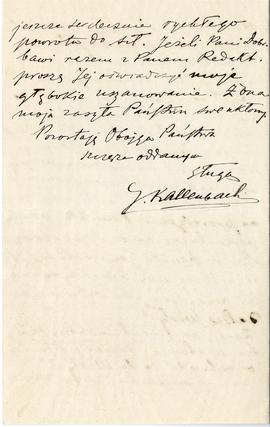 jeszcze serdecznie rychłego
powrotu do sił. Jeżeli Pani Dobr.
bawi razem z Panem Redakt.
proszę Jej oświadczyć moje
głębokie uszanowanie. Żona
moja zasyła Państwu swe ukłony.
Pozostaję Obojga Państwa
szczerze oddanym
sługą
J. Kallenbach